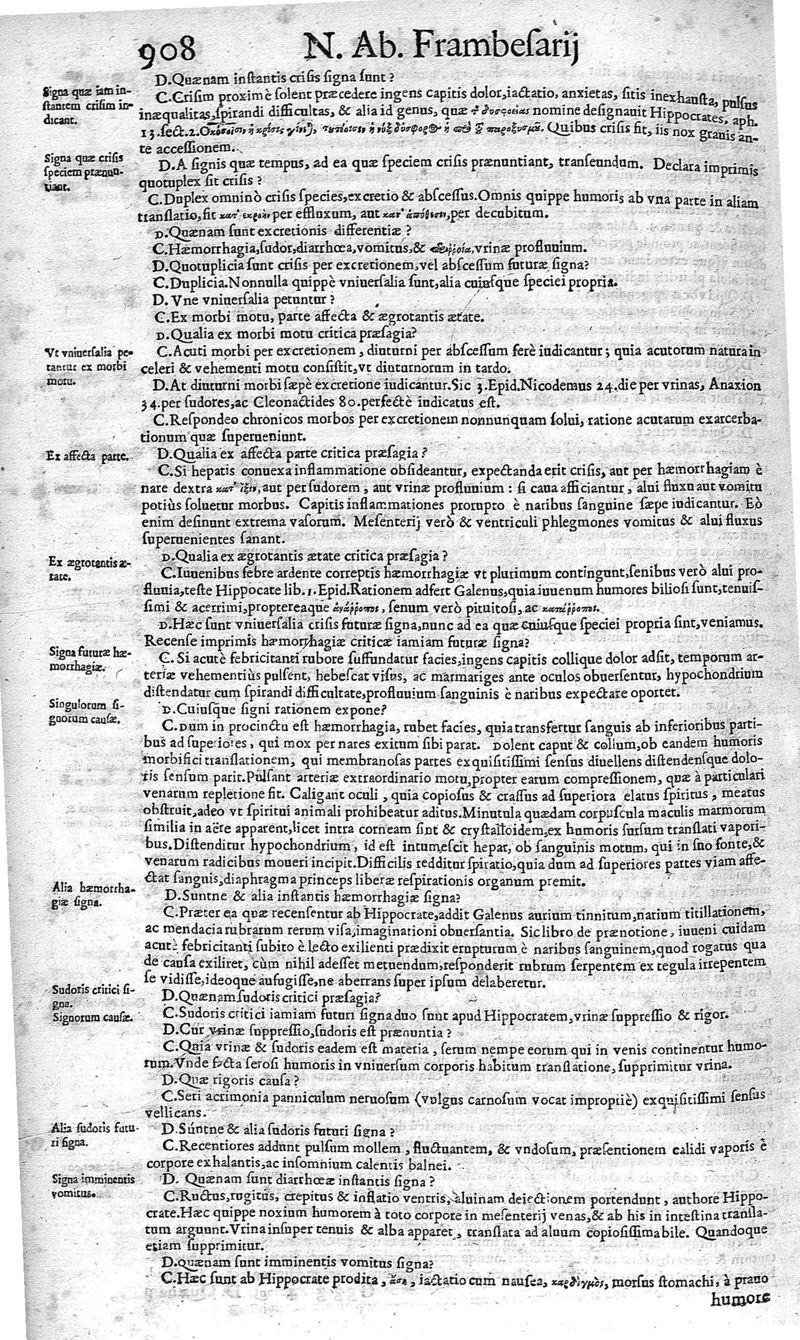 908 N. Ab. Frambesarij
D. Quænam instantis crisis signa sunt?
Signa quæ iam in-
stantem crisim in-
dicant.
C. Crisim proximè solent præcedere ingens capitis dolor, iactatio, anxietas, sitis inexhausta, pulsus
inæqualitas, spirandi difficultas, & alia id genus, quæ nomine designauit Hippocrates, aph.
13. sect. 2. Quibus crisis fit, iis nox grauis an-
te accessionem.
Signa quæ crisis
speciem prænun-
tiant.
D. A signis quæ tempus, ad ea quæ speciem crisis prænuntiant, transeundum. Declara imprimis
quotuplex sit crisis?
C. Duplex omninò crisis species, excretio & abscessus. Omnis quippe humoris ab vna parte in aliam
translatio, fit per effluxum, aut per decubitum.
D. Quænam sunt excretionis differentiæ?
C. Hæmorrhagia, sudor, diarrhœa, vomitus, & vrinæ profluuium.
D. Quotuplicia sunt crisis per excretionem, vel abscessum futuræ signa?
C. Duplicia. Nonnulla quippè vniuersalia sunt, alia cuiusque speciei propria.
D. Vne vniuersalia petuntur?
C. Ex morbi motu, parte affecta & ægrotantis ætate.
D. Qualia ex morbi motu critica præsagia?
Vt vniuersalia pe-
tantur ex morbi
motu.
C. Acuti morbi per excretionem, diuturni per abscessum ferè iudicantur; quia acutorum natura in
celeri & vehementi motu consistit, vt diuturnorum in tardo.
D. At diuturni morbi sæpè excretione iudicantur. Sic 3. Epid. Nicodemus 24. die per vrinas, Anaxion
34. per sudores, ac Cleonactides 80. perfectè indicatus est.
C. Respondeo chronicos morbos per excretionem nonnunquam solui, ratione acutarum exarcerba-
tionum quæ superueniunt.
Ex affecta parte.
D. Qualia ex affecta parte critica præsagia?
C. Si hepatis conuexa inflammatione obsideantur, expectanda erit crisis, aut per hæmorrhagiam è
nare dextra κατ' ἴξιν, aut per sudorem, aut vrinæ profluuium: si caua afficiantur, alui fluxu aut vomitu
potiùs soluetur morbus. Capitis inflammationes prorupto è naribus sanguine sæpe iudicantur. Eò
enim desinunt extrema vasorum. Mesenterij verò & ventriculi phlegmones vomitus & alui fluxus
superuenientes sanant.
Ex ægrotantis æ-
tate.
D. Qualia ex ægrotantis ætate critica præsagia?
C. Iuuenibus febre ardente correptis hæmorrhagiæ vt plurimum contingunt, senibus verò alui pro-
fluuia, teste Hippocate lib. 1. Epid. Rationem adfert Galenus, quia iuuenum humores biliosi sunt, tenuis-
simi & acerrimi, proptereaque ἀνάῤῥοποι, senum verò pituitosi, ac κατάῤῥοποι.
D. Hæc sunt vniuersalia crisis futuræ signa, nunc ad ea quæ cuiusque speciei propria sint, veniamus.
Recense imprimis hæmorrhagiæ criticæ iamiam futuræ signa?
Signa futuræ hæ-
morrhagiæ.
C. Si acutè febricitanti rubore suffundatur facies, ingens capitis collique dolor adsit, temporum ar-
teriæ vehementiùs pulsent, hebescat visus, ac marmariges ante oculos obuersentur, hypochondrium
distendatur cum spirandi difficultate, profluuium sanguinis è naribus expectare oportet.
Singulorum si-
gnorum causæ.
D. Cuiusque signi rationem expone?
C. Dum in procinctu est hæmorrhagia, rubet facies, quia transfertur sanguis ab inferioribus parti-
bus ad superiores, qui mox per nares exitum sibi parat. Dolent caput & collum, ob eandem humoris
morbifici translationem, qui membranosas partes exquisitissimi sensus diuellens distendensque dolo-
ris sensum parit. Pulsant arteriæ extraordinario motu, propter earum compressionem, quæ à particulari
venarum repletione fit. Caligant oculi, quia copiosus & crassus ad superiora elatus spiritus, meatus
obstruit, adeo vt spiritui animali prohibeatur aditus. Minutula quædam corpuscula maculis marmorum
similia in aëre apparent, licet intra corneam sint & crystalloidem, ex humoris sursum translati vapori-
bus. Distenditur hypochondrium, id est intumescit hepar, ob sanguinis motum, qui in suo fonte, &
venarum radicibus moueri incipit. Difficilis redditur spiratio, quia dum ad superiores partes viam affe-
ctat sanguis, diaphragma princeps liberæ respirationis organum premit.
Alia hæmorrha-
giæ signa.
D. Suntne & alia instantis hæmorrhagiæ signa?
C. Præter ea quæ recensentur ab Hippocrate, addit Galenus aurium tinnitum, narium titillationem,
ac mendacia rubrarum rerum visa, imaginationi obuersantia. Sic libro de prænotione, iuueni cuidam
acutè febricitanti subito è lecto exilienti prædixit erupturum è naribus sanguinem, quod rogatus qua
de causa exiliret, cùm nihil adesset metuendum, responderit rubrum serpentem ex tegula irrepentem
se vidisse, ideoque aufugisse, ne aberrans super ipsum delaberetur.
Sudoris critici si-
gna.
D. Quænam sudoris critici præsagia?
Signorum causæ.
C. Sudoris critici iamiam futuri signa duo sunt apud Hippocratem, vrinæ suppressio & rigor.
D. Cur vrinæ suppressio, sudoris est prænuntia?
C. Quia vrinæ & sudoris eadem est materia, serum nempe eorum qui in venis continentur humo-
rum. Vnde facta serosi humoris in vniuersum corporis habitum translatione, supprimitur vrina.
D. Quæ rigoris causa?
C. Seri acrimonia panniculum neruosum (vulgus carnosum vocat impropriè) exquisitissimi sensus
vellicans.
Alia sudoris futu-
ri signa.
D. Suntne & alia sudoris futuri signa?
C. Recentiores addunt pulsum mollem, fluctuantem, & vndosum, præsentionem calidi vaporis è
corpore exhalantis, ac insomnium calentis balnei.
Signa imminentis
vomitus.
D. Quænam sunt diarrhœæ instantis signa?
C. Ructus, rugitus, crepitus & inflatio ventris, aluinam deiectionem portendunt, authore Hippo-
crate. Hæc quippe noxium humorem à toto corpore in mesenterij venas, & ab his in intestina transla-
tum arguunt. Vrina insuper tenuis & alba apparet, translata ad aluum copiosissima bile. Quandoque
etiam supprimitur.
D. Quænam sunt imminentis vomitus signa?
C. Hæc sunt ab Hippocrate prodita, ἄση, iactatio cum nausea, καρδιωγμὸς, morsus stomachi, à prauo
humore